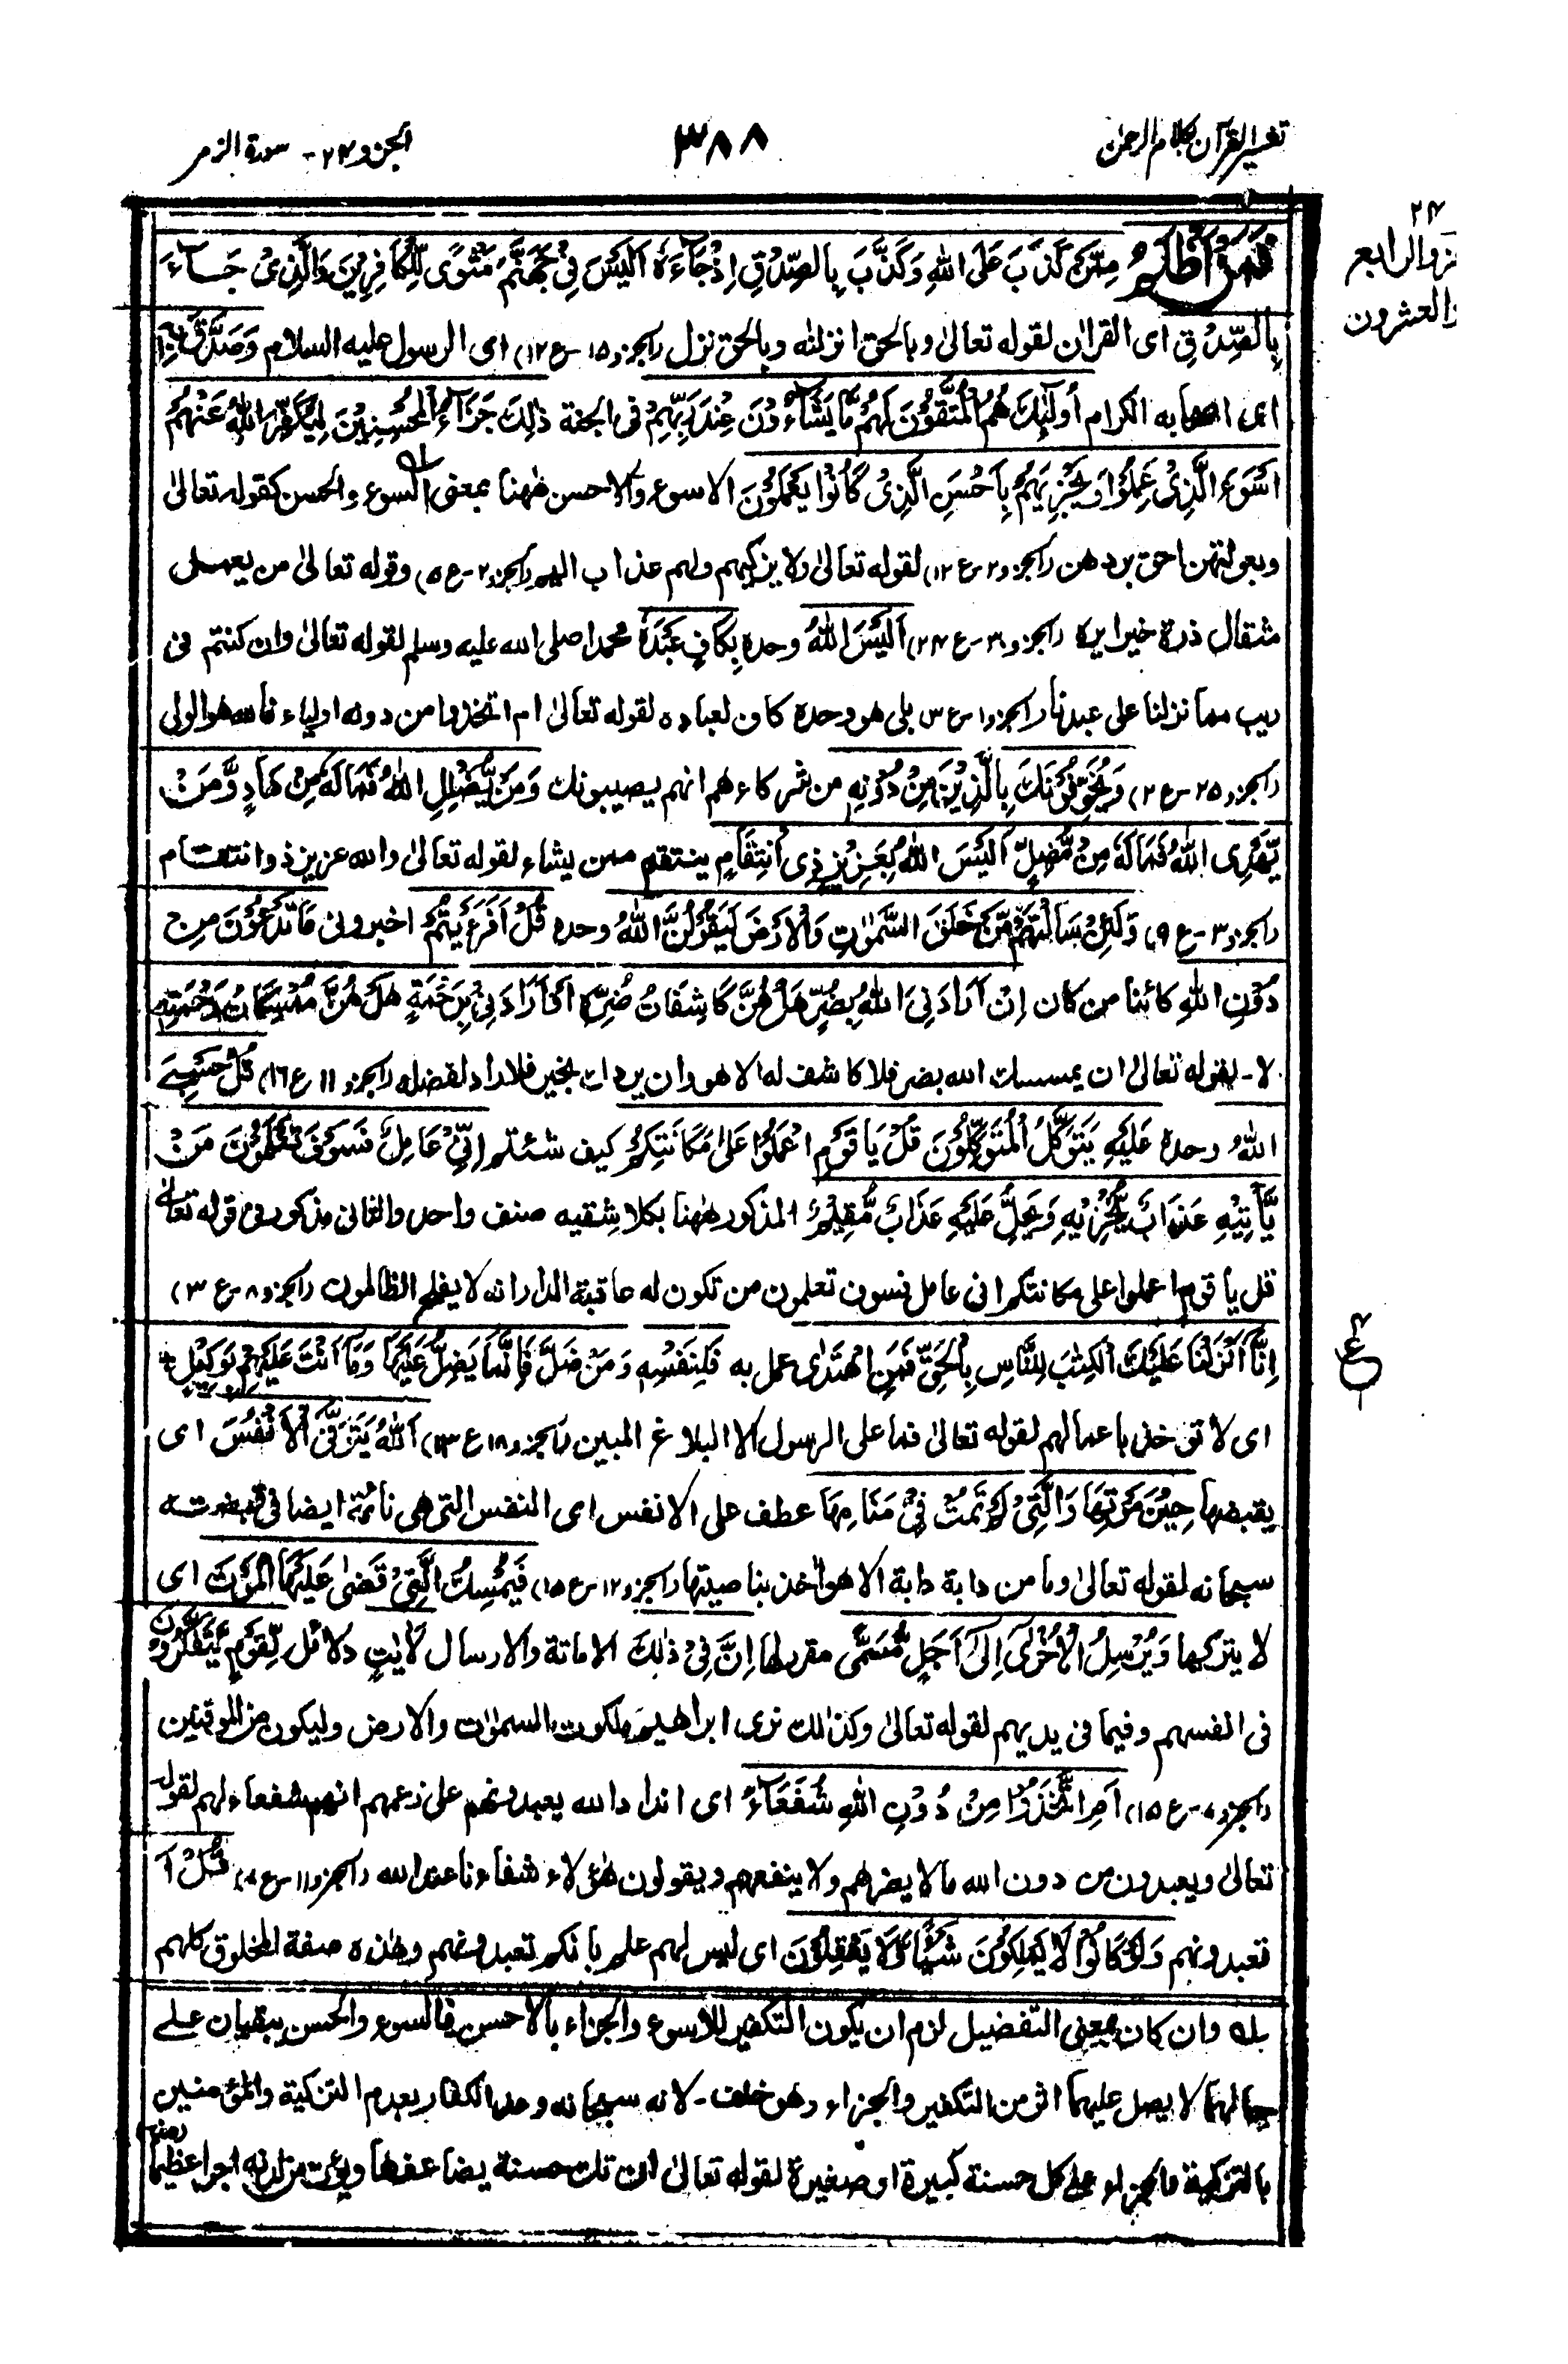 تفسير القرآن بكلام الرحمن
٣٨٨
الجزو ٢٤ - سورة الزمر
٢٤
الرابع
والعشرون
فَمَنْ أَظْلَمُ مِمَّنْ كَذَبَ عَلَى اللّٰهِ وَكَذَّبَ بِالصِّدْقِ اِذْ جَآءَهٗ اَلَيْسَ فِىْ جَهَنَّمَ مَثْوًى لِّلْكَافِرِيْنَ وَالَّذِىْ جَآءَ
بِالصِّدْقِ اى القرآن لقوله تعالىٰ وبالحق انزلنٰه وبالحق نزل (الجزو ١٥-ع ١٢) اى الرسول عليه السلام وَصَدَّقَ بِهٖ
اى اصحابه الكرام اُولٰٓئِكَ هُمُ الْمُتَّقُوْنَ لَهُمْ مَّا يَشَآءُوْنَ عِنْدَ رَبِّهِمْ فى الجنة ذٰلِكَ جَزَآءُ الْمُحْسِنِيْنَ لِيُكَفِّرَ اللّٰهُ عَنْهُمْ
اَسْوَءَ الَّذِىْ عَمِلُوْا وَيَجْزِيَهُمْ بِاَحْسَنِ الَّذِىْ كَانُوْا يَعْمَلُوْنَ الاسوء والاحسن ههنا بمعنى السوء والحسن كقوله تعالىٰ
وبعولتهن احق بردهن (الجزو ٢-ع ١٢) لقوله تعالىٰ ولا يزكيهم ولهم عذاب اليم (الجزو ٢-ع ٥) وقوله تعالىٰ من يعمل
مثقال ذرة خيرا يره (الجزو ٣٠-ع ٢٤) اَلَيْسَ اللّٰهُ وحده بِكَافٍ عَبْدَهٗ محمدا صلى الله عليه وسلم لقوله تعالىٰ وان كنتم فى
ريب مما نزلنا على عبدنا (الجزو ١-ع ٣) بلى هو وحده كاف لعباده لقوله تعالىٰ ام اتخذوا من دونه اولياء فالله هو الولى
(الجزو ٢٥-ع ٢) وَيُخَوِّفُوْنَكَ بِالَّذِيْنَ مِنْ دُوْنِهٖ من شركاءهم انهم يصيبونك وَمَنْ يُّضْلِلِ اللّٰهُ فَمَا لَهٗ مِنْ هَادٍ وَّمَنْ
يَّهْدِى اللّٰهُ فَمَا لَهٗ مِنْ مُّضِلٍّ اَلَيْسَ اللّٰهُ بِعَزِيْزٍ ذِى انْتِقَامٍ ينتقم ممن يشاء لقوله تعالىٰ والله عزيز ذو انتقام
(الجزو ٣-ع ٩) وَلَئِنْ سَاَلْتَهُمْ مَّنْ خَلَقَ السَّمٰوٰتِ وَالْاَرْضَ لَيَقُوْلُنَّ اللّٰهُ وحده قُلْ اَفَرَءَيْتُمْ اخبرونى مَا تَدْعُوْنَ مِنْ
دُوْنِ اللّٰهِ كائنا من كان اِنْ اَرَادَنِىَ اللّٰهُ بِضُرٍّ هَلْ هُنَّ كَاشِفَاتُ ضُرِّهٖ اَوْ اَرَادَنِىْ بِرَحْمَةٍ هَلْ هُنَّ مُمْسِكَاتُ رَحْمَتِهٖ
لا - لقوله تعالىٰ ان يمسسك الله بضر فلا كاشف له الا هو وان يردك بخير فلا راد لفضله (الجزو ١١ ع ١٦) قُلْ حَسْبِىَ
اللّٰهُ وحده عَلَيْهِ يَتَوَكَّلُ الْمُتَوَكِّلُوْنَ قُلْ يَا قَوْمِ اعْمَلُوْا عَلٰى مَكَانَتِكُمْ كيف شئتم اِنِّىْ عَامِلٌ فَسَوْفَ تَعْلَمُوْنَ مَنْ
يَّاْتِيْهِ عَذَابٌ يُّخْزِيْهِ وَيَحِلُّ عَلَيْهِ عَذَابٌ مُّقِيْمٌ المذكور ههنا بكلا شقيه صنف واحد والثانى مذكور فى قوله تعالىٰ
قل يا قوم اعملوا على مكانتكم انى عامل فسوف تعلمون من تكون له عاقبة الدار انه لا يفلح الظالمون (الجزو ٨-ع ٣)
اِنَّا اَنْزَلْنَا عَلَيْكَ الْكِتٰبَ لِلنَّاسِ بِالْحَقِّ فَمَنِ اهْتَدٰى عمل به فَلِنَفْسِهٖ وَمَنْ ضَلَّ فَاِنَّمَا يَضِلُّ عَلَيْهَا وَمَا اَنْتَ عَلَيْهِمْ بِوَكِيْلٍ
ع
اى لا تؤخذ باعمالهم لقوله تعالىٰ فما على الرسول الا البلاغ المبين (الجزو ١٨ ع ١٣) اَللّٰهُ يَتَوَفَّى الْاَنْفُسَ اى
يقبضها حِيْنَ مَوْتِهَا وَالَّتِىْ لَمْ تَمُتْ فِىْ مَنَامِهَا عطف على الانفس اى النفس التى هى نائمة ايضا فى قبضته
سبحانه لقوله تعالىٰ وما من دابة دابة الا هو اٰخذ بناصيتها (الجزو ١٢-ع ١٥) فَيُمْسِكُ الَّتِىْ قَضٰى عَلَيْهَا الْمَوْتَ اى
لا يتركها وَيُرْسِلُ الْاُخْرٰى اِلٰى اَجَلٍ مُّسَمًّى مقرر لها اِنَّ فِىْ ذٰلِكَ الاماتة والارسال لَاٰيٰتٍ دلائل لِّقَوْمٍ يَّتَفَكَّرُوْنَ
فى انفسهم وفيما فى يديهم لقوله تعالىٰ وكذالك نرى ابراهيم ملكوت السمٰوٰت والارض وليكون من الموقنين
(الجزو ٧-ع ١٥) اَمِ اتَّخَذُوْا مِنْ دُوْنِ اللّٰهِ شُفَعَآءَ اى اندادا لله يعبدونهم على زعمهم انهم شفعاء لهم لقوله
تعالىٰ ويعبدون من دون الله مالا يضرهم ولا ينفعهم ويقولون هٰؤلاء شفعاءنا عند الله (الجزو ١١-ع ٧) قُلْ اَ
تعبدونهم وَلَوْ كَانُوْا لَا يَمْلِكُوْنَ شَيْئًا وَّلَا يَعْقِلُوْنَ اى ليس لهم علم بانكم تعبدونهم وهٰذه صفة المخلوق كلهم
بله وان كان بمعنى التفضيل لزم ان يكون التكفير للاسوء والجزاء بالاحسن فالسوء والحسن يبقيان على
حالهما لا يصل عليهما اثر من التكفير والجزاء وهو خلف - لانه سبحانه وعد الكفار بعدم التزكية والمؤمنين
بالتزكية فالجزاء على كل حسنة كبيرة او صغيرة لقوله تعالىٰ ان تك حسنة يضاعفها ويؤت من لدنه اجرا عظيما